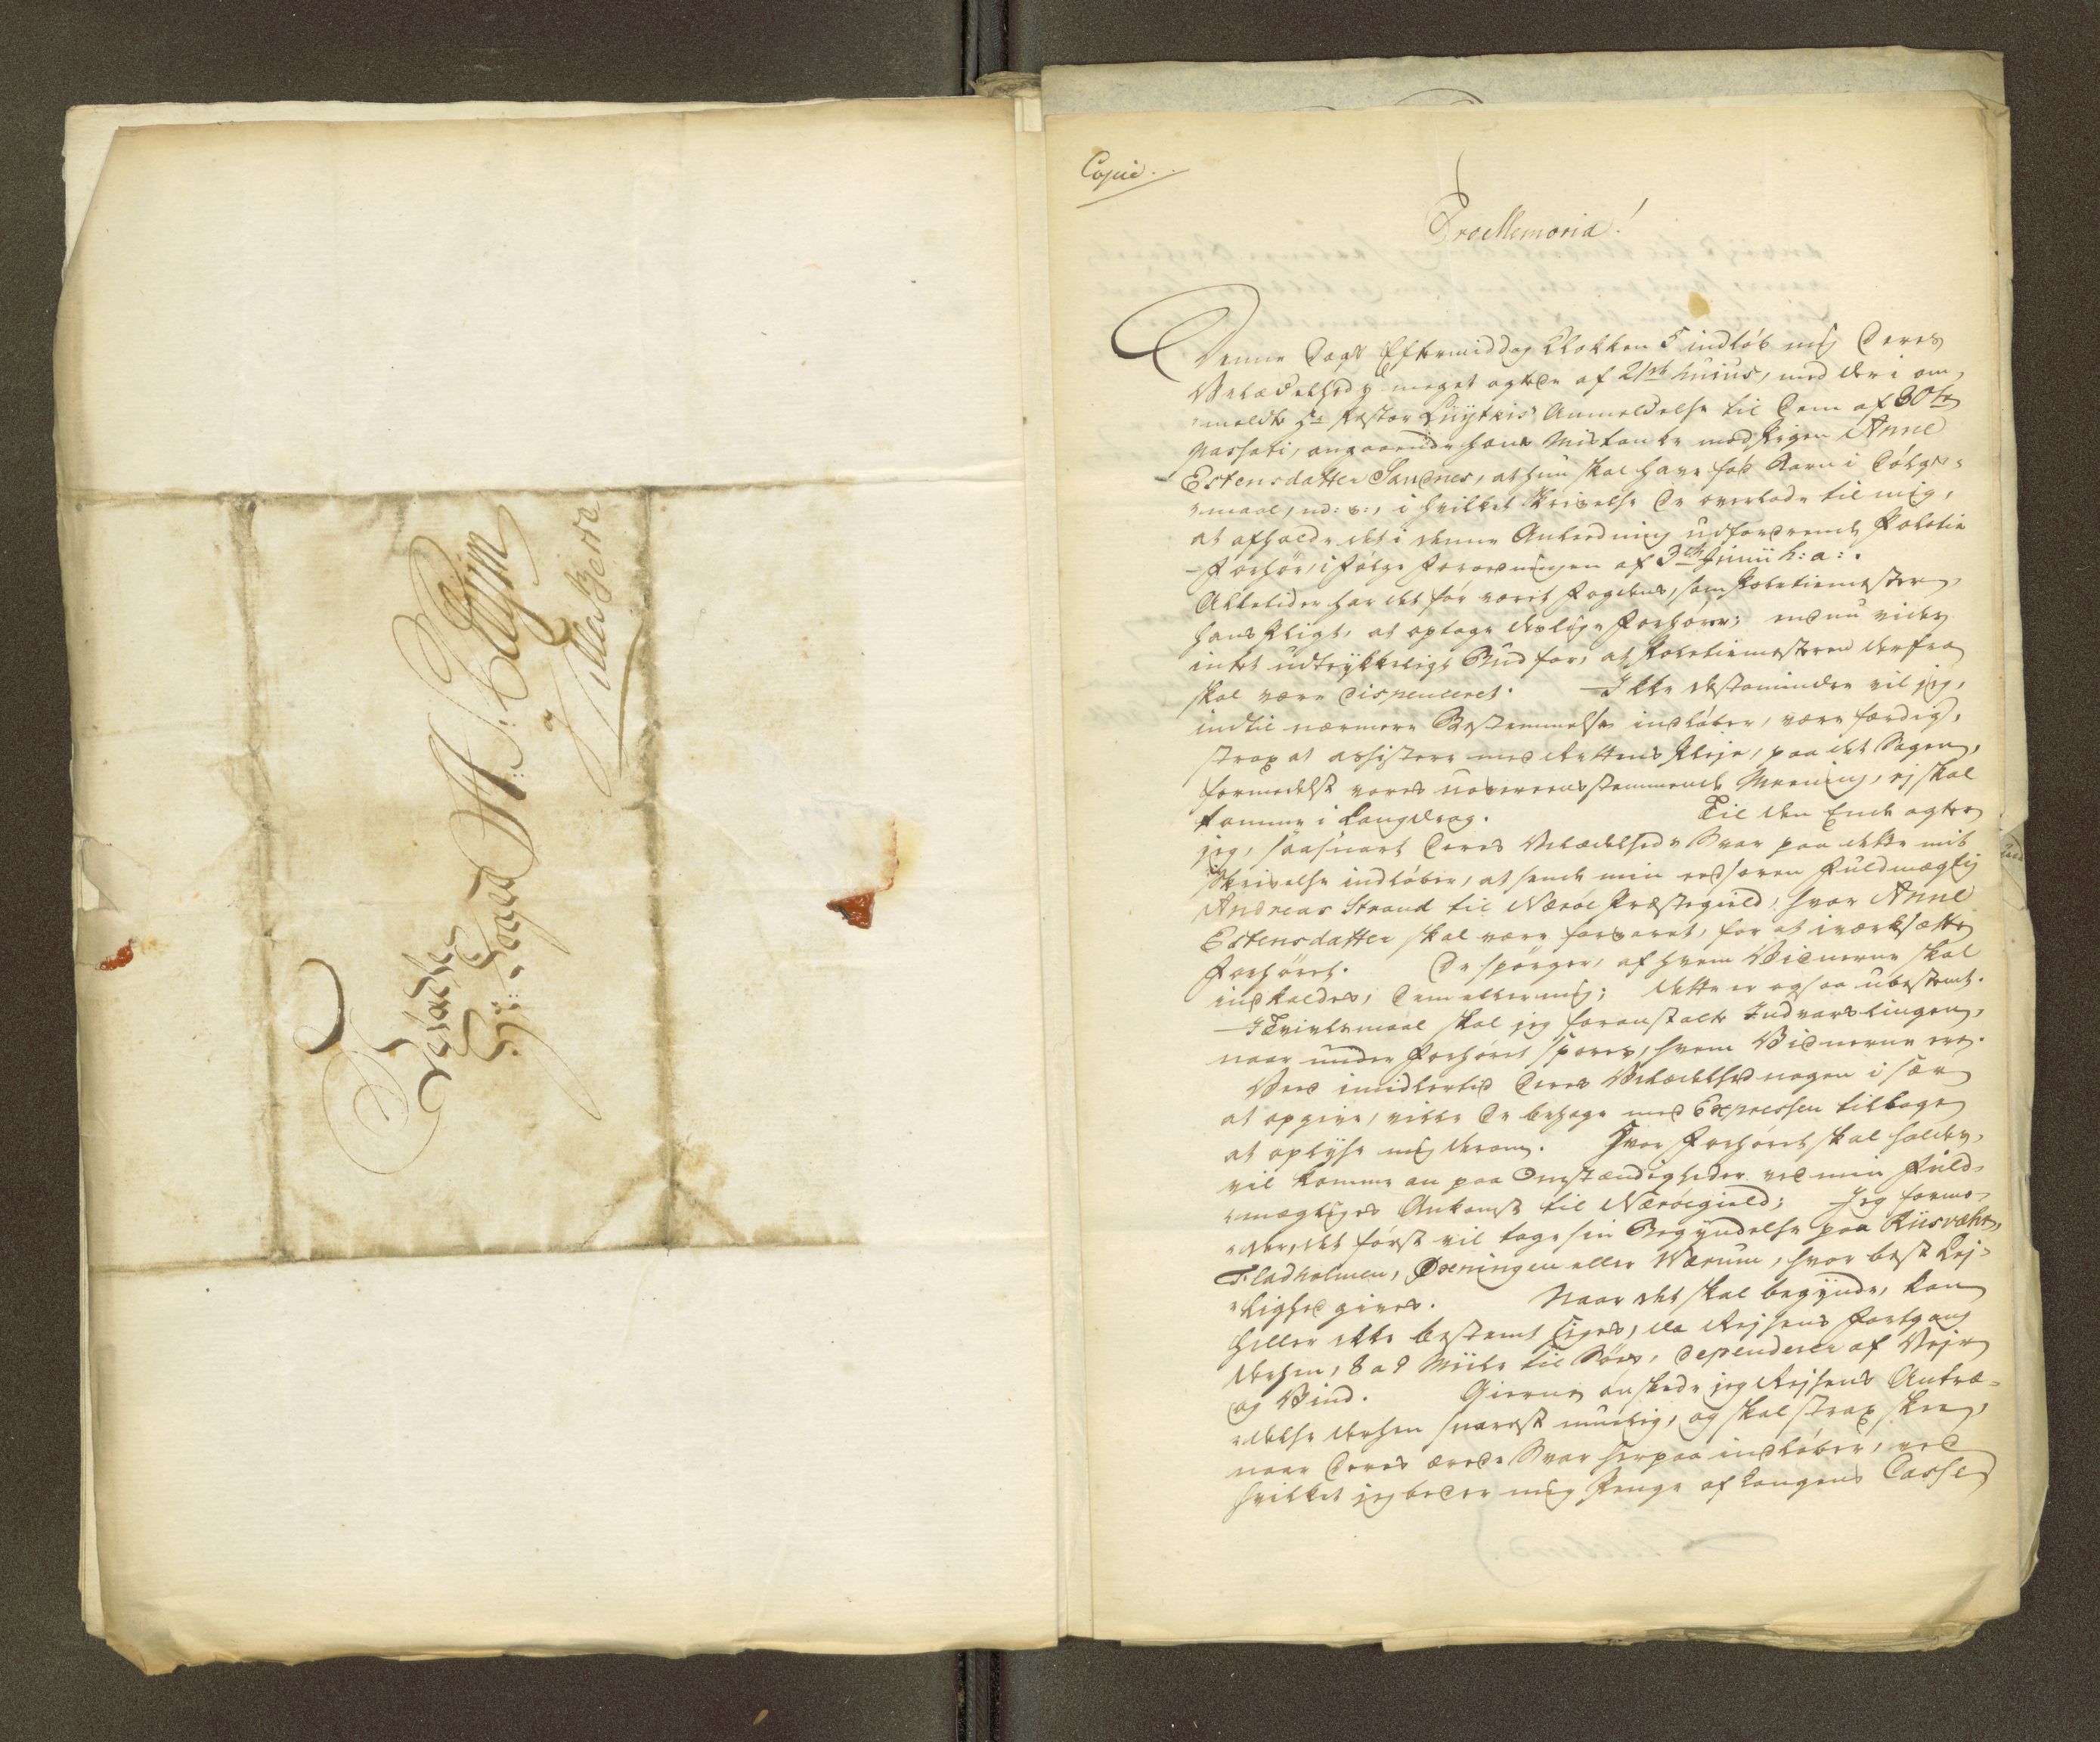 Velædle
Hr: Foged H: Collin
Villa Zerra
Copie.
ProMemoria!
Denne Dags Eftermiddag Klokken 5 indløb mig Deres
Velædelheds meget agtede af 21de huius, med deri om-
meldte Hr Pastor Lüytkis Anmeldelse til Dem af 30te
Passati, angaaende hans Mistanke mod Pigen Anne
Estensdatter Sandnes, at hun skal have fød Barn i Dølgs-
maal, m: v:, i hvilket Skrivelse De overlade til mig,
at afholde det i denne Anledning udfordrende Politie
Forhør, i Følge Forordningen af 3die Junii h: a:.
Alletider har det før været Fogdens, som Politiemester,
hans Pligt, at optage deslige Forhører; endnu vides
intet udtrykkeligt Bud for, at Politiemesteren derfra
skal være dispenceret. Ikke destomindre vil jeg,
indtil nærmere Bestemmelse indløber, være færdig,
strax at assistere med Rettens Pleje, paa det Sagen,
formedelst vores uoverensstemmende Meening, ej skal
komme i Langdrag. Til den Ende agter
jeg, saasnart Deres Velædelheds Svar paa dette mit
Skrivelse indløber, at sende min edsoren Fuldmægtig
Andreas Strand til Nærøe Præstegield, hvor Anne
Estensdatter skal være forvaret, for at iværksætte
Forhøret. De spørger, af hvem Vidnerne skal
indkaldes, Dem eller mig; dette er ogsaa ubestemt.
I Tvivlsmaal skal jeg foranstalte Indvarslingen,
naar under Forhøret spores, hvem Vidnerne ere.
Veed imidlertid Deres Velædelhed nogen i sær
at opgive, ville De behage med Expressen tilbage
at oplyse mig derom. Hvor Forhøret skal holdes,
vil komme an paa Omstændigheder ved min Fuld-
mægtiges Ankomst til Nærøegield; Jeg formo-
der, det først vil tage sin Begyndelse paa Riisvær,
Fladholmen, Øxningen eller Værum, hvor best Lej-
lighed gives. Naar det skal begynde, kan
heller ikke bestemt siges, da Rejsens Fortgang
derhen, 8 a 9 Miile til Søes, dependerer af Vejr
og Vind. Gierne ønskede jeg Rejsens Antræ-
delse derhen snarest muelig, og skal strax skee,
naar Deres ærede Svar herpaa indløber, ved
hvilket jeg beder mig Penge af Kongens Casse